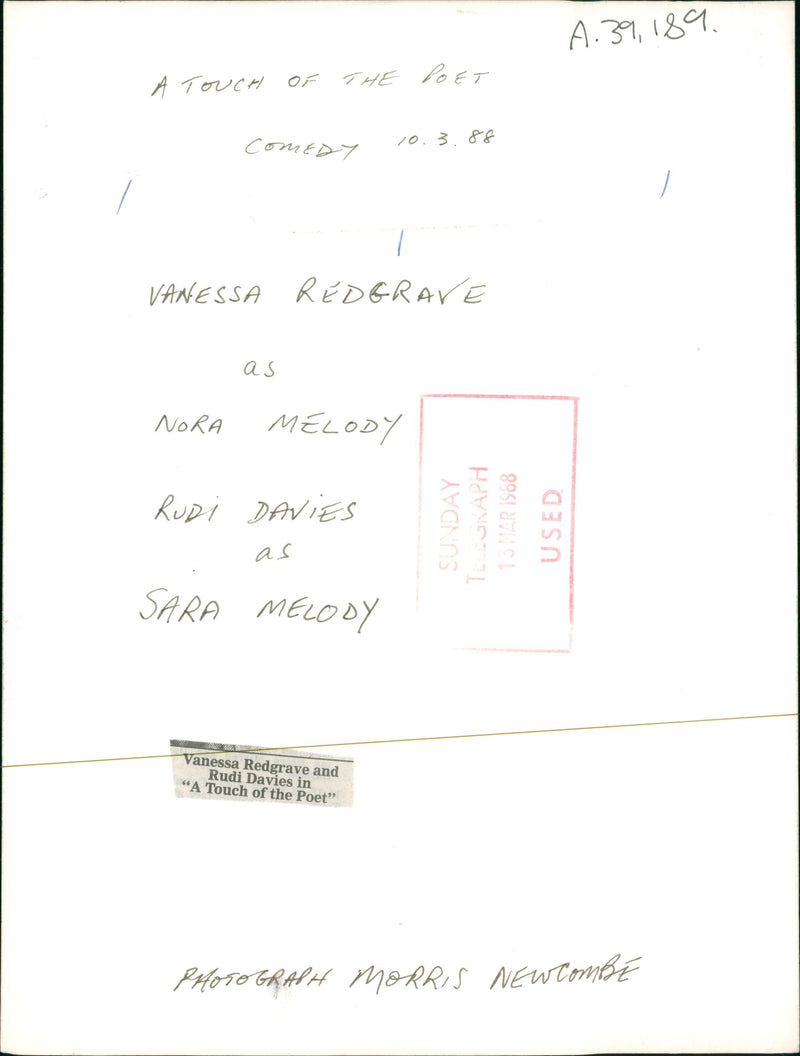 A.39,189.
A TOUCH OF THE POET
COMEDY 10.3.88
VANESSA REDGRAVE
as
NORA MELODY
RUDI DAVIES
as
SARA MELODY
SUNDAY
TELEGRAPH
13 MAR 1968
USED
Vanessa Redgrave and
Rudi Davies in
“A Touch of the Poet”
PHOTOGRAPH MORRIS NEWCOMBE